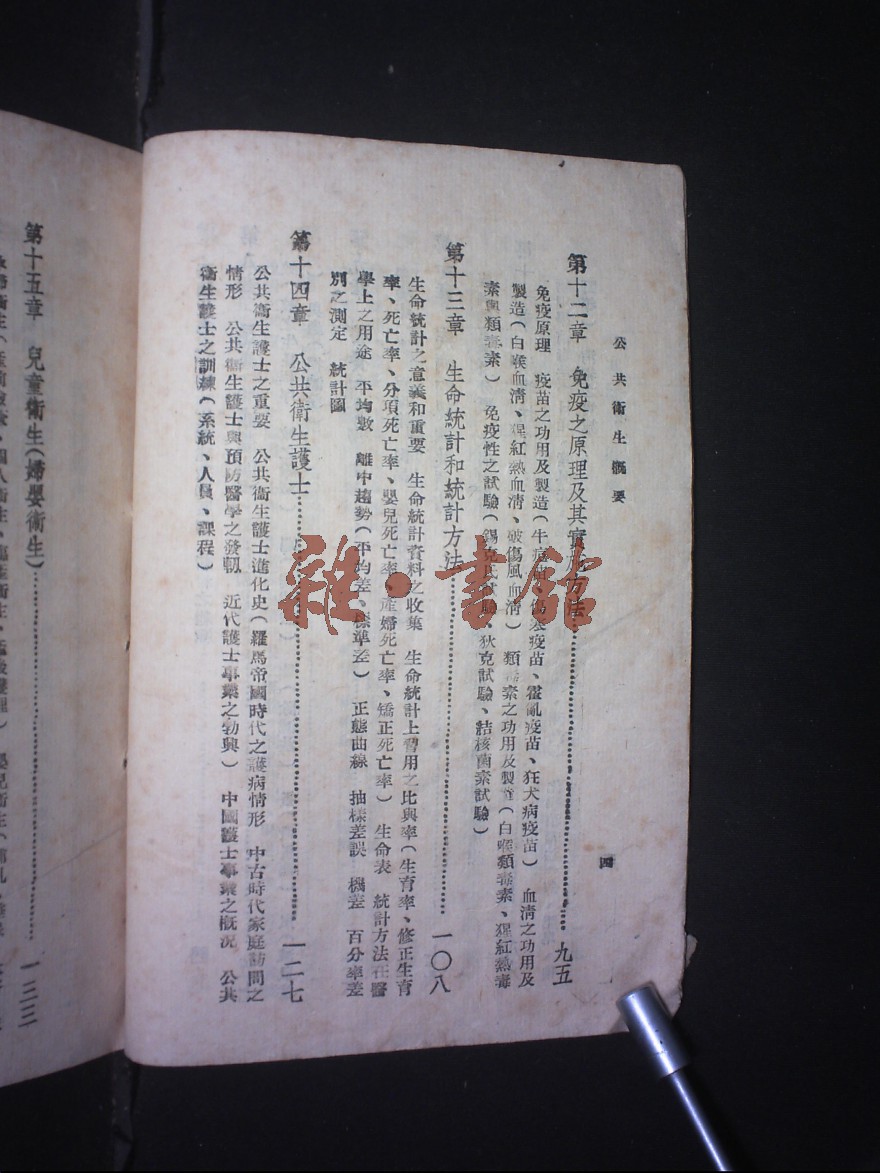 公共衞生概要
四
第十二章　免疫之原理及其實施方法……九五
免疫原理　疫苗之功用及製造(牛痘苗、傷寒疫苗、霍亂疫苗、狂犬病疫苗)　血淸之功用及
製造(白喉血淸、猩紅熱血淸、破傷風血淸)　類毒素之功用及製造(白喉類毒素、猩紅熱毒
素與類毒素)　免疫性之試驗(錫克氏試驗、狄克試驗、結核菌素試驗)
第十三章　生命統計和統計方法……一〇八
生命統計之意義和重要　生命統計資料之收集　生命統計上習用之比與率(生育率、修正生育
率、死亡率、分項死亡率、嬰兒死亡率、產婦死亡率、矯正死亡率)　生命表　統計方法在醫
學上之用途　平均數　離中趨勢(平均差、標準差)　正態曲線　抽樣差誤　機差　百分率差
別之測定　統計圖
第十四章　公共衞生護士……一二七
公共衞生護士之重要　公共衞生護士進化史(羅馬帝國時代之護病情形　中古時代家庭訪問之
情形　公共衞生護士與預防醫學之發軔　近代護士事業之勃興)　中國護士事業之概況　公共
衞生護士之訓練(系統、人員、課程)
第十五章　兒童衞生(婦嬰衞生)……一三三
雜·書館